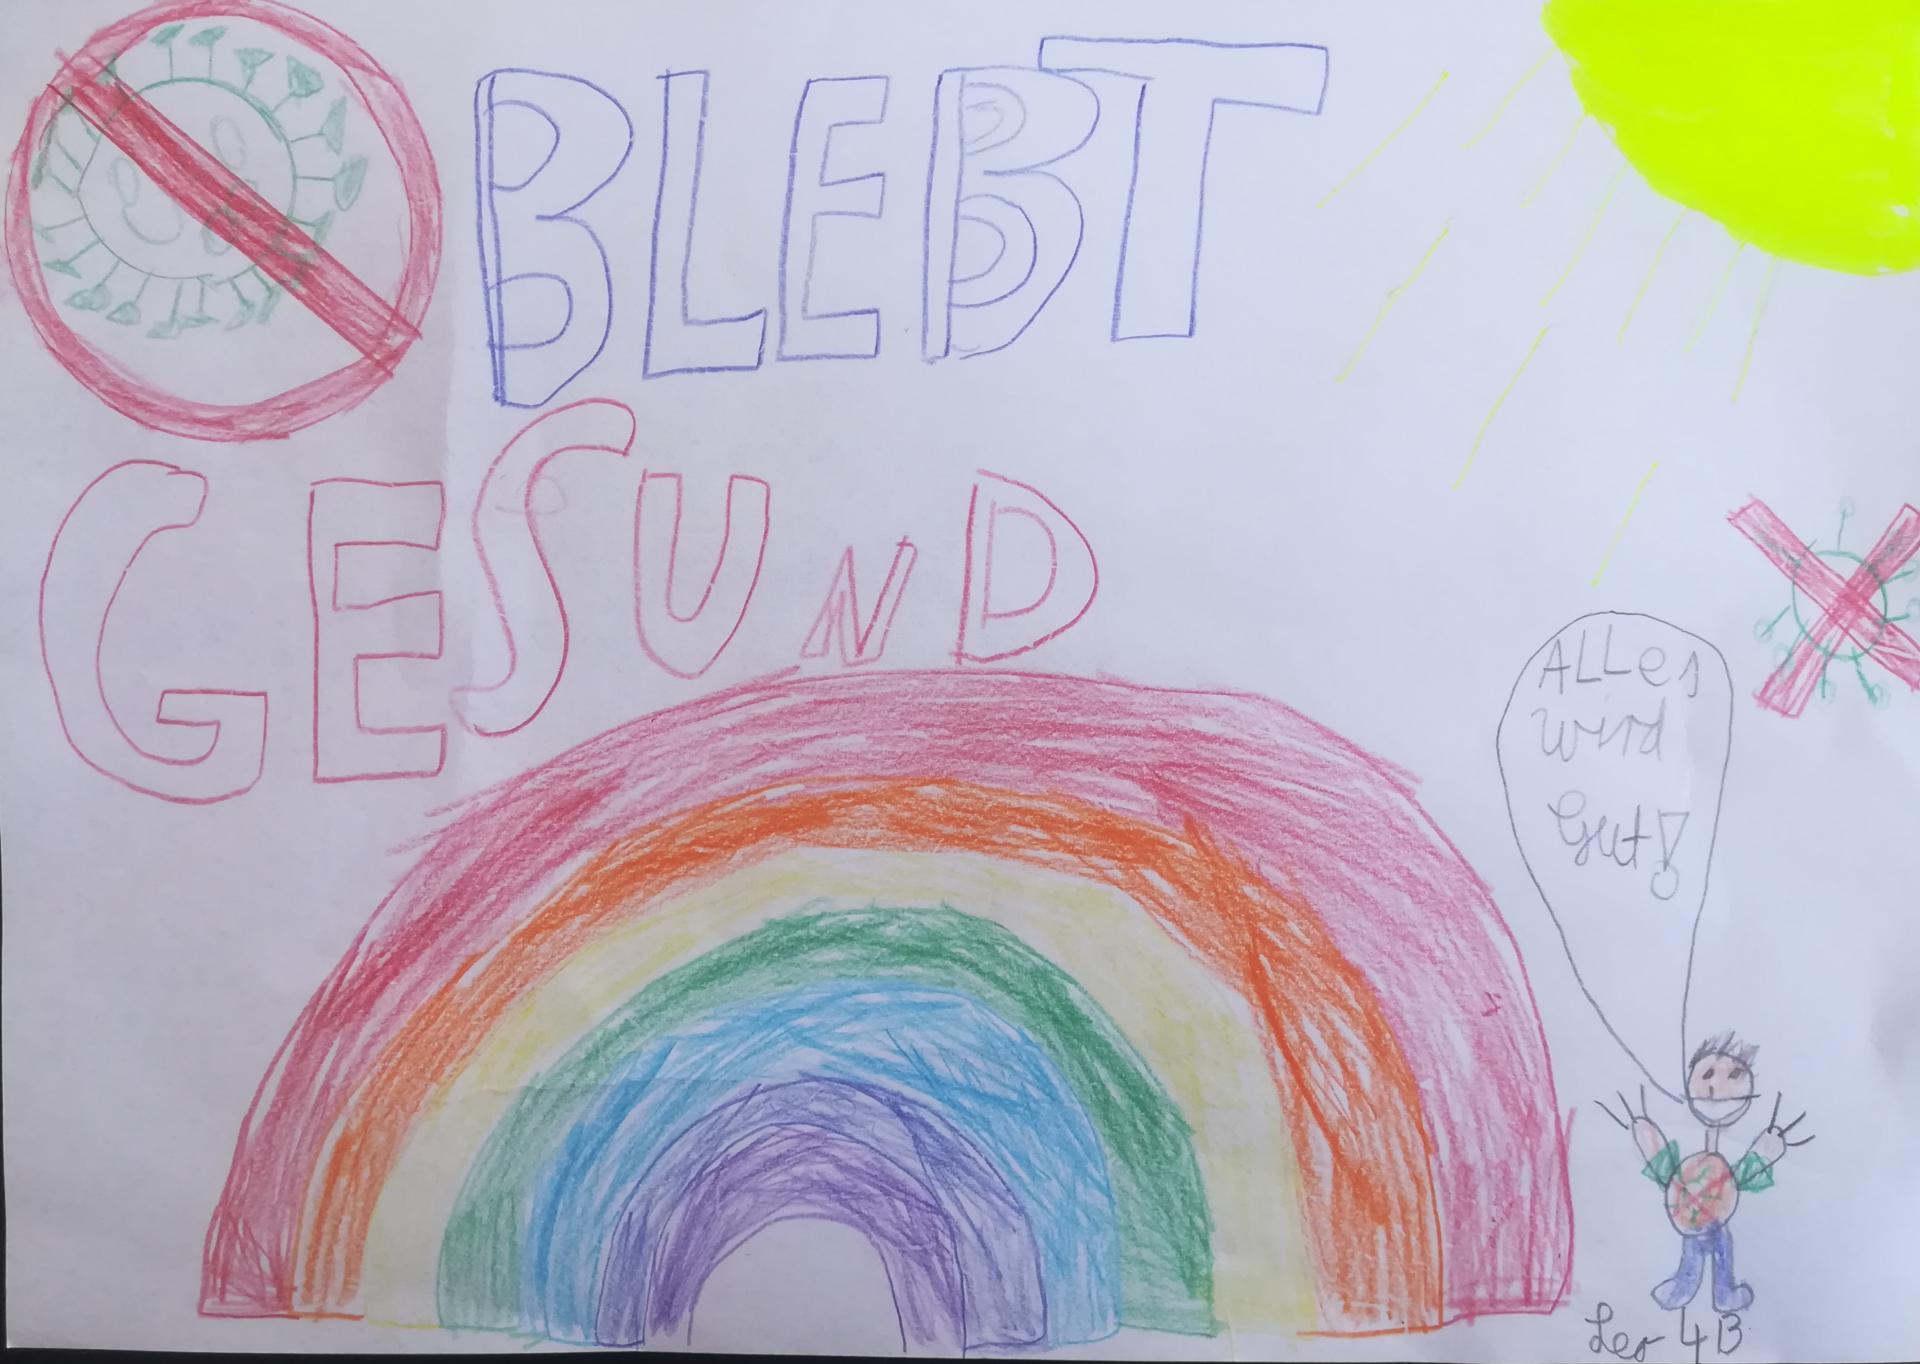 BLEBT
GESUND
ALLes
wird
Gut!
Leo 4B